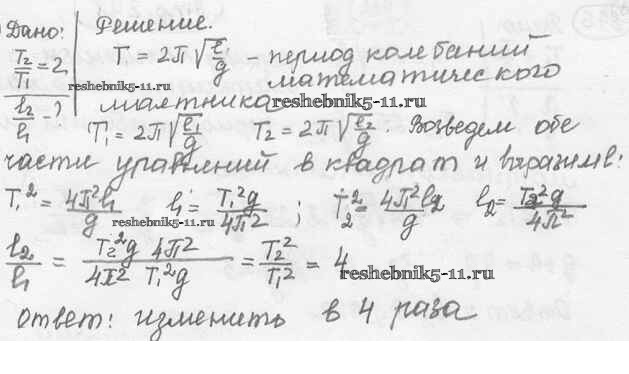 Дано: Решение.
T₂/T₁ = 2 T = 2π√(l/g) - период колебаний
reshebnik5-11.ru математического
l₂/l₁ - ? маятника reshebnik5-11.ru
T₁ = 2π√(l₁/g) T₂ = 2π√(l₂/g). Возведем обе
части уравнений в квадрат и выразим l:
T₁² = 4π²l₁/g l₁ = T₁²g/4π² ; T₂² = 4π²l₂/g l₂ = T₂²g/4π²
reshebnik5-11.ru
l₂/l₁ = T₂²g 4π²/4π² T₁²g = T₂²/T₁² = 4
reshebnik5-11.ru
Ответ: изменить в 4 раза